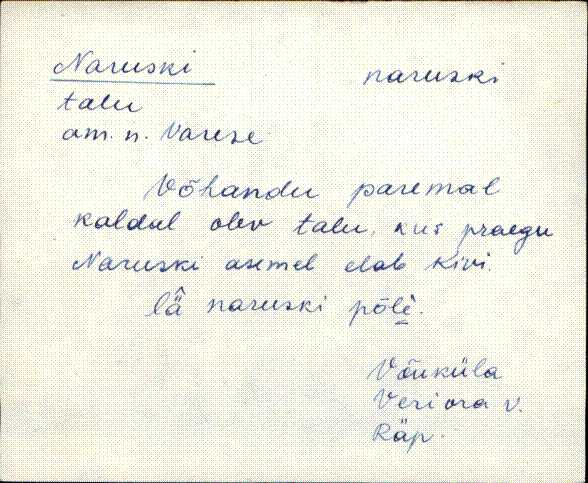 Naruski naruski
talu
am. n. Varese
Võhandu paremal
kaldal olev talu, kus praegu
Naruski asemel elab Kivi.
lä̂ naruski põlè.
Võuküla
Veriora v.
Räp.